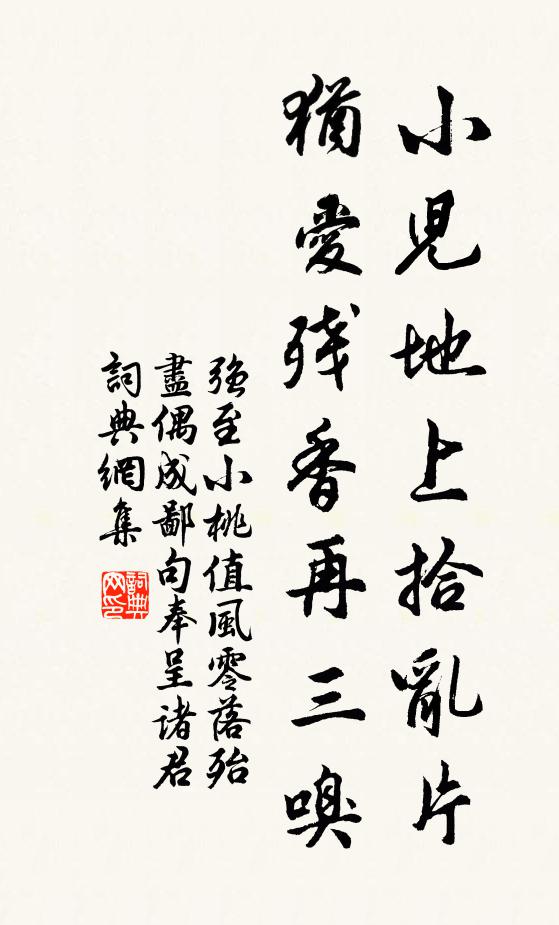 小兒地上拾亂片
猶愛殘香再三嗅
強至小桃值風零落殆
盡偶成鄙句奉呈諸君
詞典網集
詞典网印